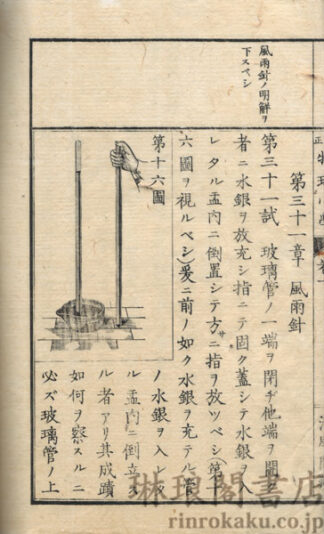 風雨針ノ明解ヲ
下スベシ
第三十一章 風雨針
第三十一試 玻璃管ノ一端ヲ閉ヂ他端ヲ開ク
者ニ水銀ヲ放充シ指ニテ固ク蓋シテ水銀ヲ入
レタル盂内ニ倒置シテ方サニ指ヲ放ツベシ(第十
六圖ヲ視ルベシ)爰ニ前ノ如ク水銀ヲ充テル管
第十六圖
ノ水銀ヲ入レ
ル盂内ニ倒立ス
ル者アリ其成蹟
如何ヲ察スルニ
必ズ玻璃管ノ上
琳琅閣書店
rinrokaku.co.jp